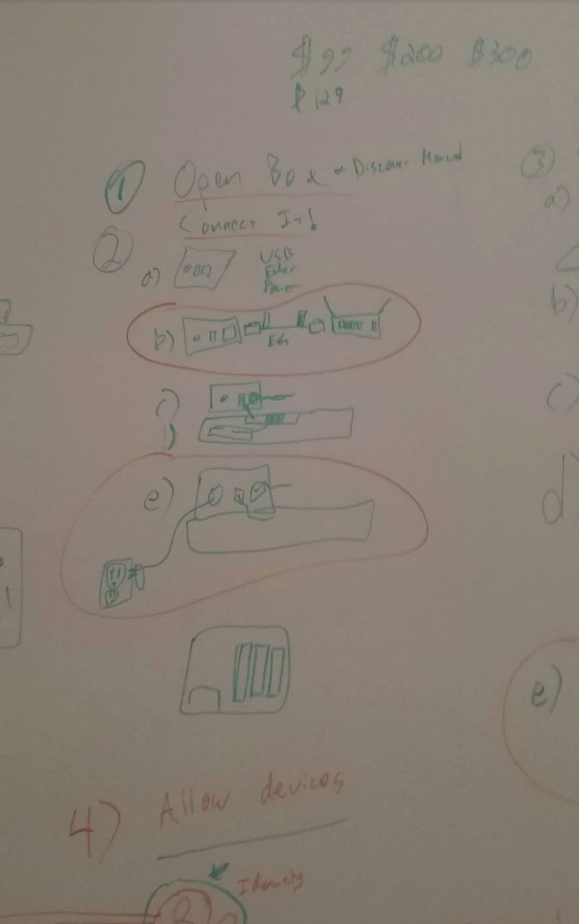 $99 $200 $300
$129
1 Open Box & Discover Manual
2 Connect It!
a) USB
Ether
Power
b)
Eth
c)
D
e)
4) Allow devices
Identity
3
a)
b)
c)
d)
e)